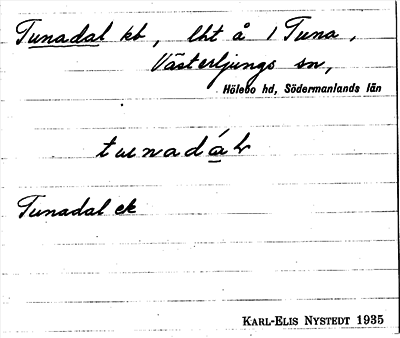 Tunadal kb, lht å 1 Tuna,
Västerljungs sn,
Hölebo hd, Södermanlands län
tunadáḷ
Tunadal ek
KARL-ELIS NYSTEDT 1935